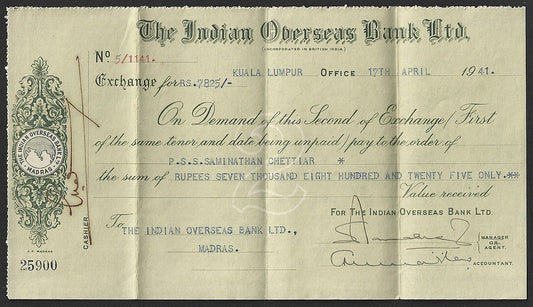 The Indian Overseas Bank Ltd.
(INCORPORATED IN BRITISH INDIA.)
No 5/1141.
KUALA LUMPUR OFFICE 17TH APRIL 1941.
Exchange for RS. 7825/-
On Demand of this Second of Exchange (First
of the same tenor and date being unpaid) pay to the order of
P.S.S.SAMINATHAN CHETTIAR *
the sum of RUPEES SEVEN THOUSAND EIGHT HUNDRED AND TWENTY FIVE ONLY.**
Value received
FOR THE INDIAN OVERSEAS BANK LTD.
To
THE INDIAN OVERSEAS BANK LTD.,
MADRAS.
MANAGER
OR
AGENT.
ACCOUNTANT.
THE INDIAN OVERSEAS BANK LTD
MADRAS.
CASHIER
25900